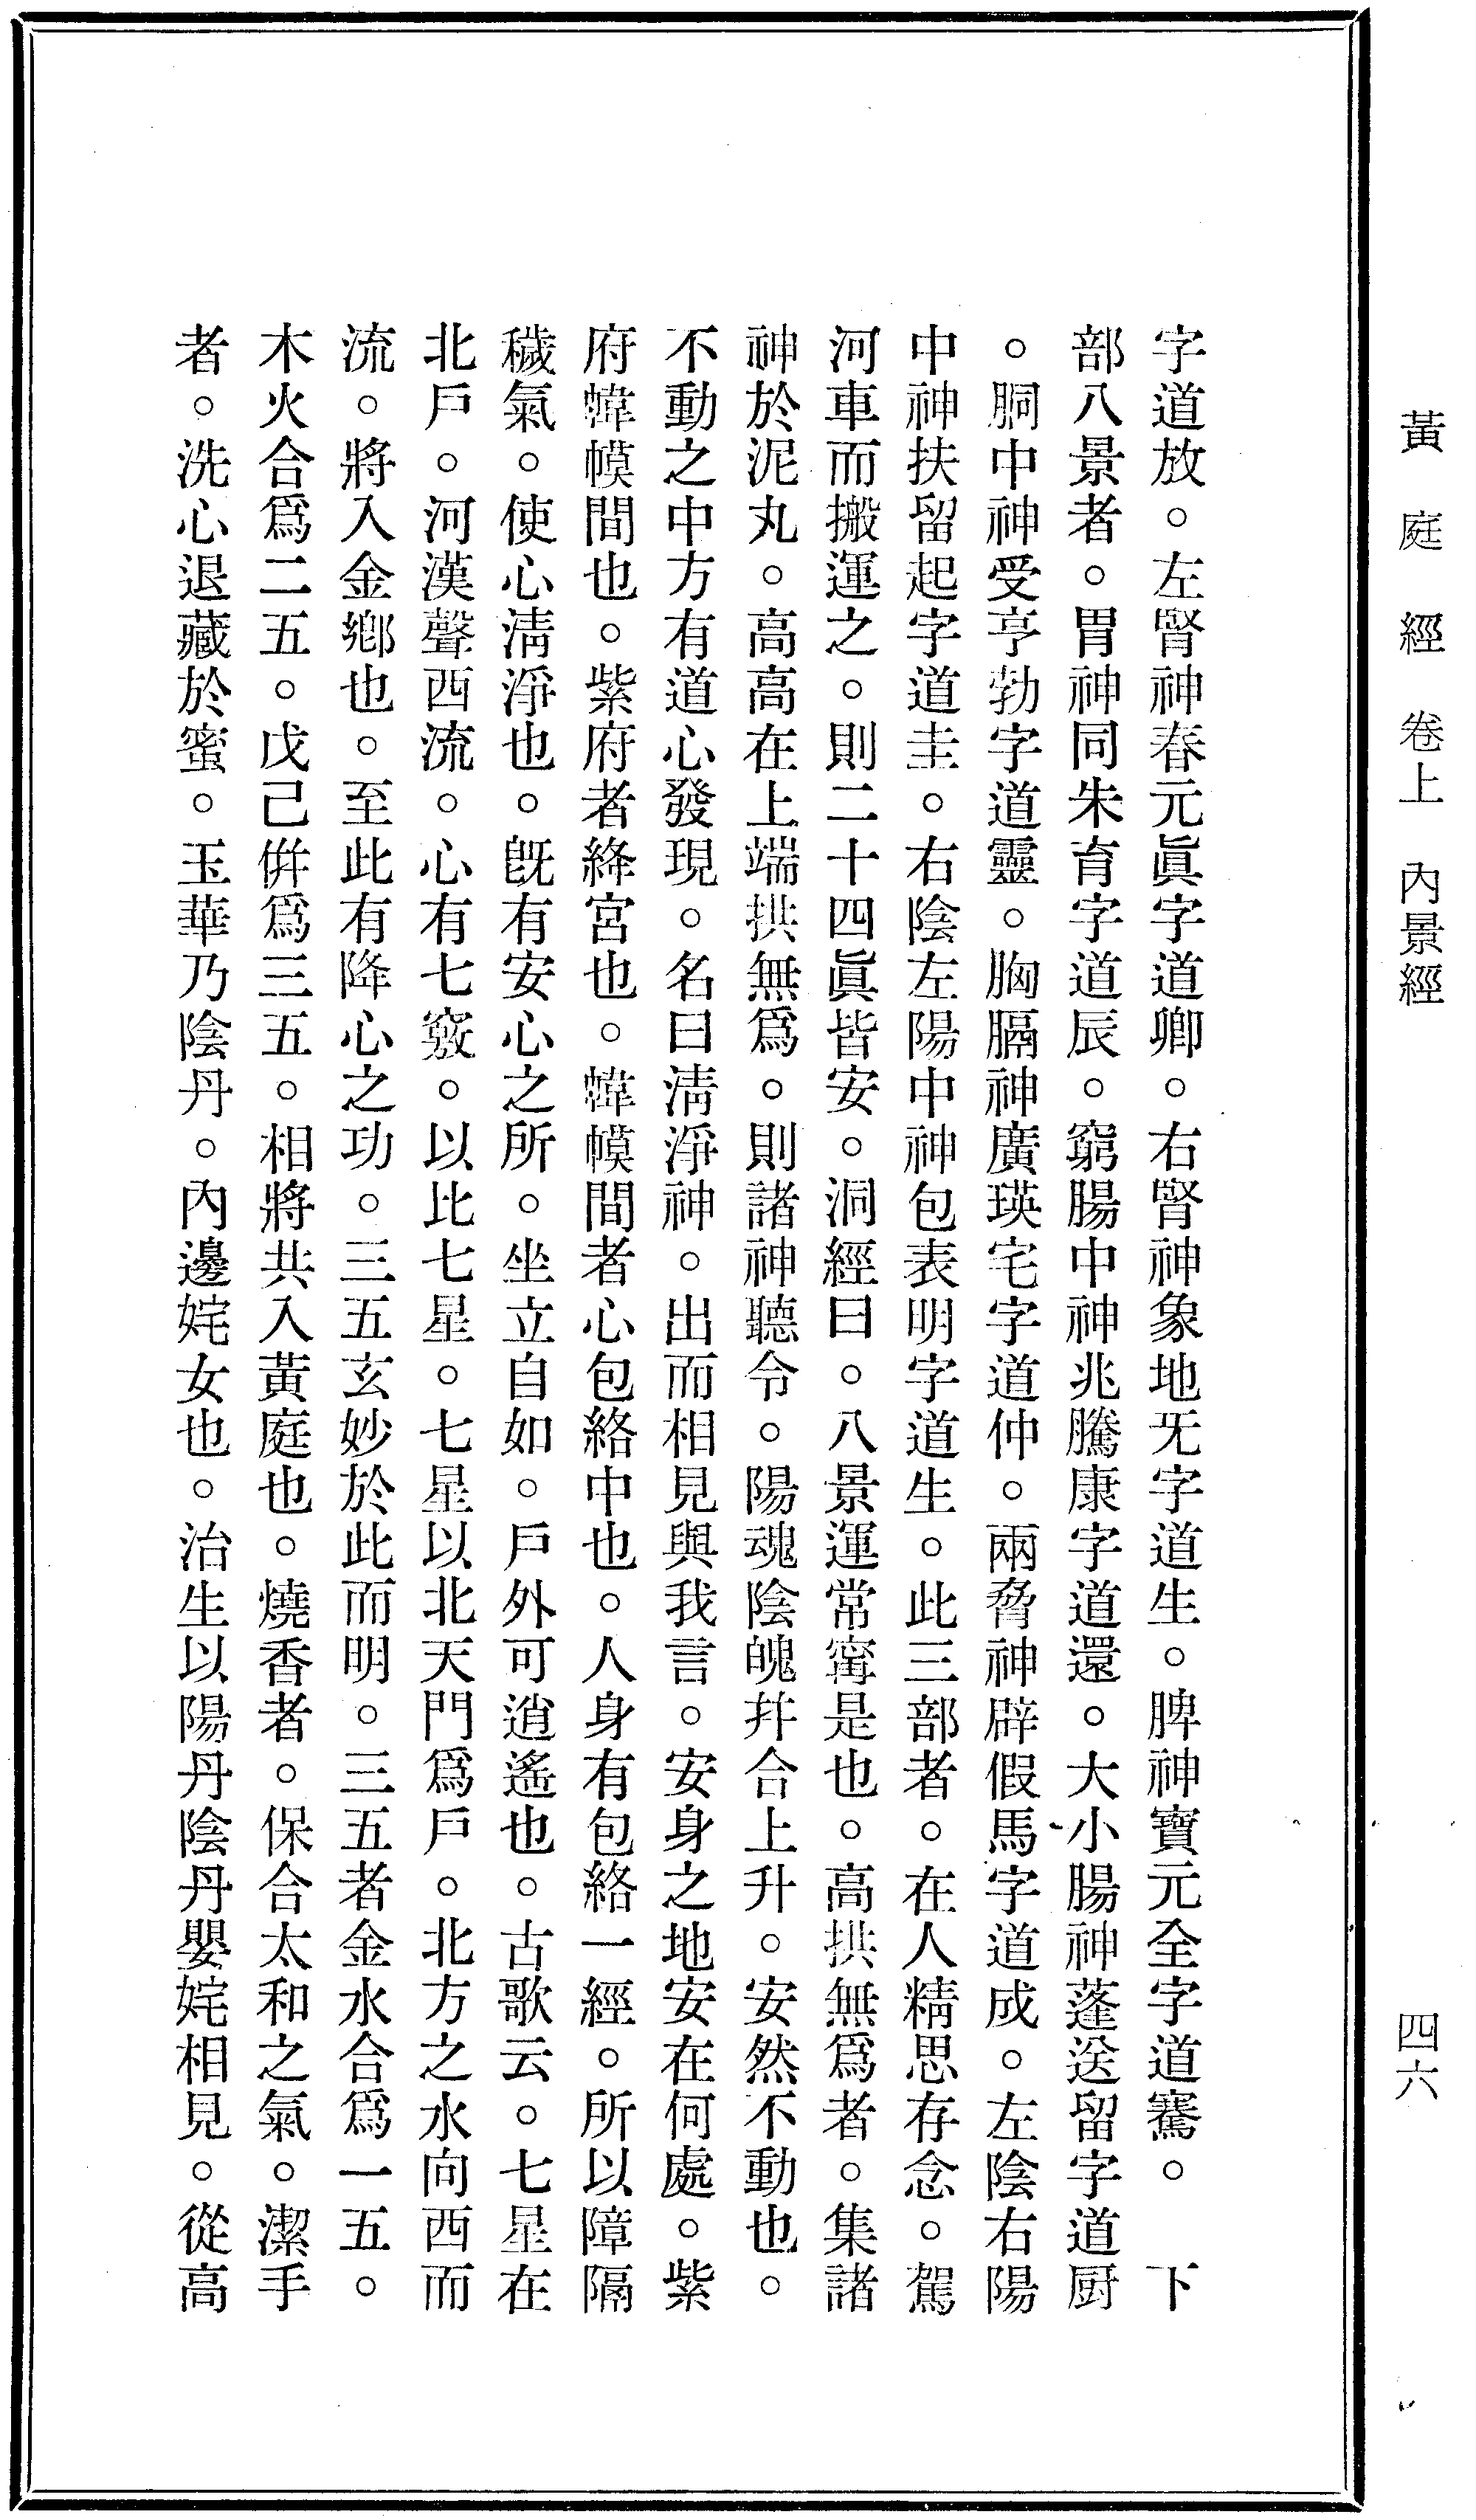 黃庭經 卷上 內景經 四六
字道放。左腎神春元眞字道卿。右腎神象地无字道生。脾神寶元全字道騫。 下
部八景者。胃神同朱育字道辰。窮腸中神兆騰康字道還。大小腸神蓬送留字道厨
。胴中神受亨勃字道靈。胸膈神廣瑛宅字道仲。兩脅神辟假馬字道成。左陰右陽
中神扶留起字道圭。右陰左陽中神包表明字道生。此三部者。在人精思存念。駕
河車而搬運之。則二十四眞皆安。洞經曰。八景運常甯是也。高拱無爲者。集諸
神於泥丸。高高在上端拱無爲。則諸神聽令。陽魂陰魄幷合上升。安然不動也。
不動之中方有道心發現。名曰淸淨神。出而相見與我言。安身之地安在何處。紫
府幃幙間也。紫府者絳宮也。幃幙間者心包絡中也。人身有包絡一經。所以障隔
穢氣。使心淸淨也。旣有安心之所。坐立自如。戶外可逍遙也。古歌云。七星在
北戶。河漢聲西流。心有七竅。以比七星。七星以北天門爲戶。北方之水向西而
流。將入金鄕也。至此有降心之功。三五玄妙於此而明。三五者金水合爲一五。
木火合爲二五。戊己倂爲三五。相將共入黃庭也。燒香者。保合太和之氣。潔手
者。洗心退藏於蜜。玉華乃陰丹。內邊姹女也。治生以陽丹陰丹嬰姹相見。從高